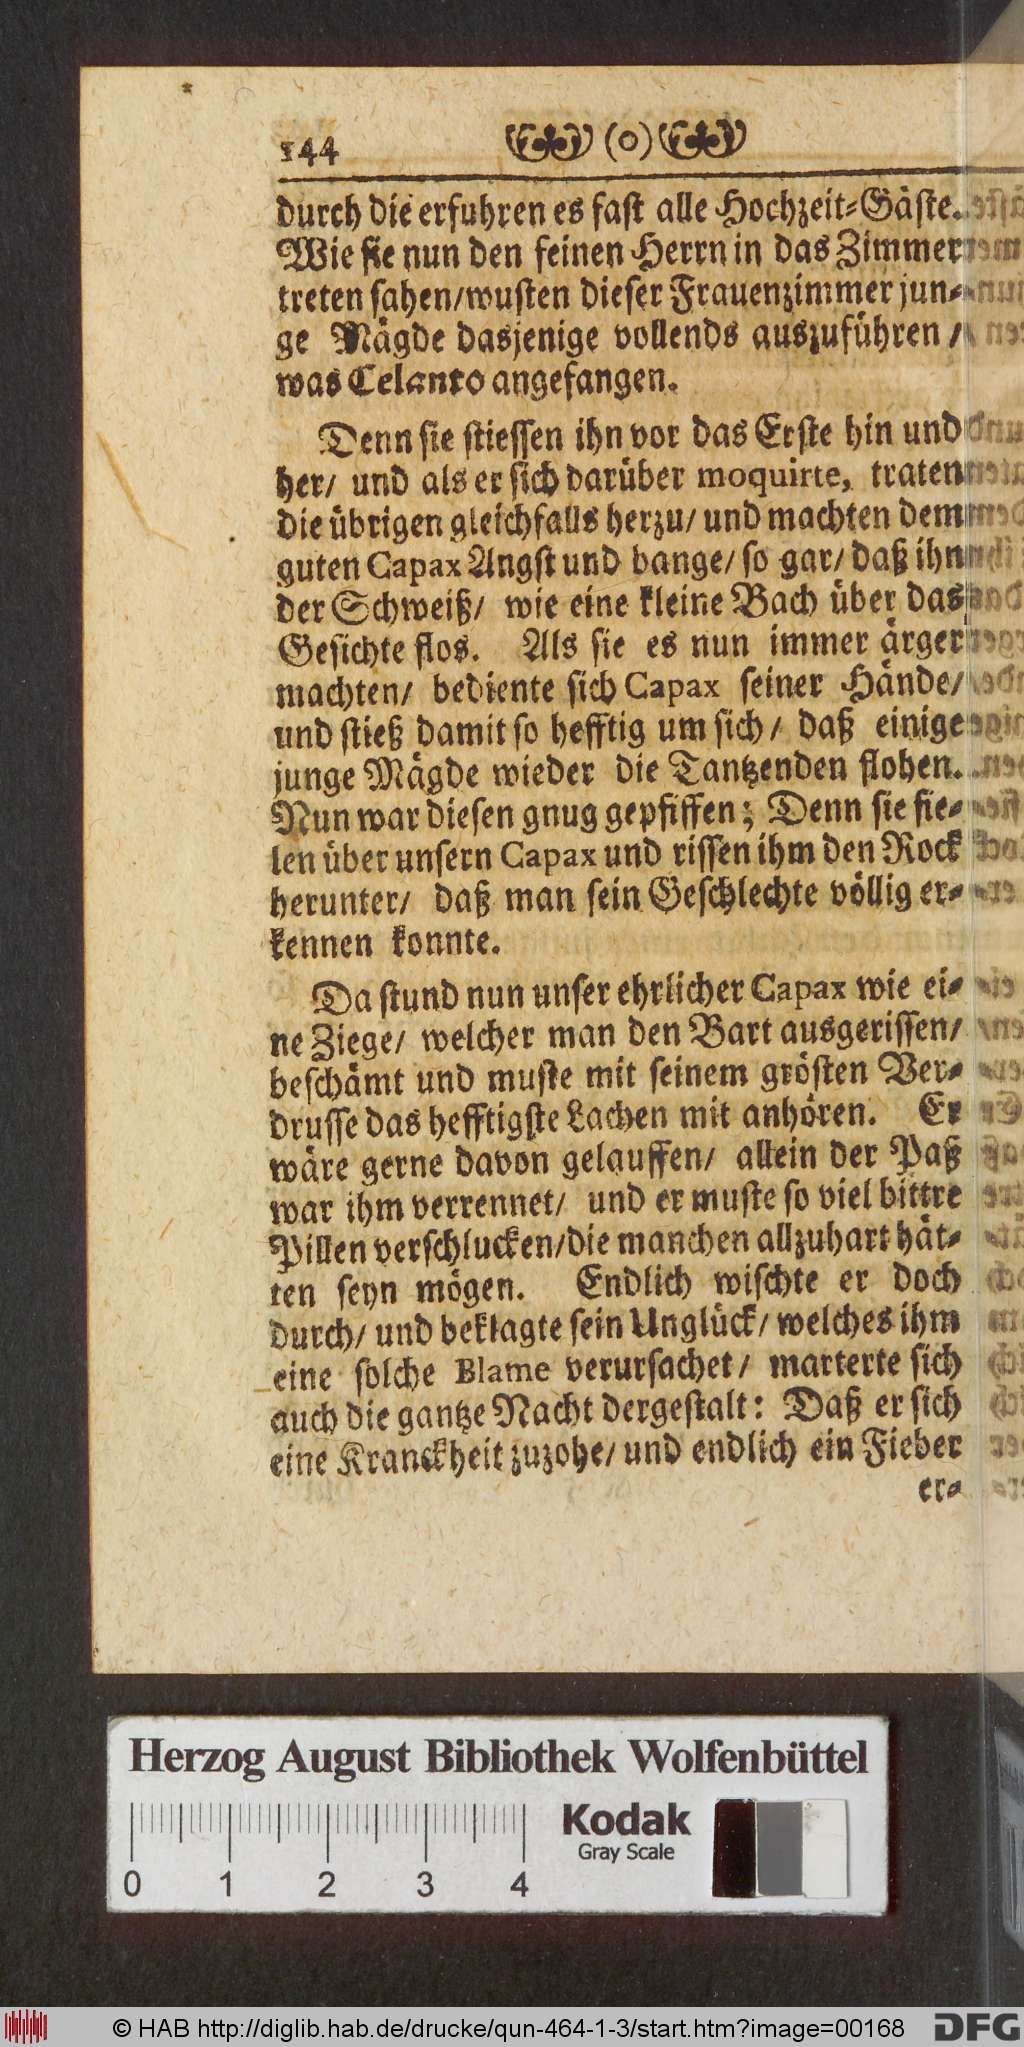 144 (o)
durch die erfuhren es fast alle Hochzeit-Gäste.
Wie sie nun den feinen Herrn in das Zimmer
treten sahen/wusten dieser Frauenzimmer jun-
ge Mägde dasjenige vollends auszuführen /
was Celanto angefangen.
Denn sie stiessen ihn vor das Erste hin und
her/ und als er sich darüber moquirte, traten
die übrigen gleichfalls herzu/ und machten dem
guten Capax Angst und bange/ so gar/ daß ihn
der Schweiß/ wie eine kleine Bach über das
Gesichte flos. Als sie es nun immer ärger
machten/ bediente sich Capax seiner Hände/
und stieß damit so hefftig um sich/ daß einige
junge Mägde wieder die Tantzenden flohen.
Nun war diesen gnug gepfiffen; Denn sie fie-
len über unsern Capax und rissen ihm den Rock
herunter/ daß man sein Geschlechte völlig er-
kennen konnte.
Da stund nun unser ehrlicher Capax wie ei-
ne Ziege/ welcher man den Bart ausgerissen/
beschämt und muste mit seinem grösten Ver-
drusse das hefftigste Lachen mit anhören. Er
wäre gerne davon gelauffen/ allein der Paß
war ihm verrennet/ und er muste so viel bittre
Pillen verschlucken/die manchen allzuhart hät-
ten seyn mögen. Endlich wischte er doch
durch/ und beklagte sein Unglück/ welches ihm
eine solche Blame verursachet/ marterte sich
auch die gantze Nacht dergestalt: Daß er sich
eine Kranckheit zuzohe/ und endlich ein Fieber
er-
Herzog August Bibliothek Wolfenbüttel
Kodak
Gray Scale
0 1 2 3 4
© HAB http://diglib.hab.de/drucke/qun-464-1-3/start.htm?image=00168
DFG